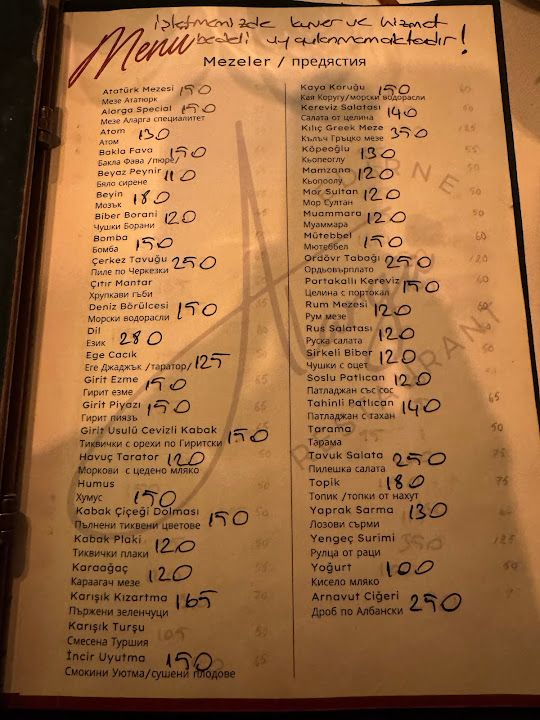 işletmemizde kuver ve hizmet
Menu bedeli uygulanmamaktadır!
Mezeler / предястия
Atatürk Mezesi 150
Мезе Ататюрк
Alarga Special 150
Мезе Аларга специалитет
Atom 130
Атом
Bakla Fava 150
Бакла Фава /пюре/
Beyaz Peynir 110
Бяло сирене
Beyin 180
Мозък
Biber Borani 120
Чушки Борани
Bomba 150
Бомба
Çerkez Tavuğu 250
Пиле по Черкезки
Çıtır Mantar
Хрупкави гъби
Deniz Börülcesi 150
Морски водорасли
Dil 280
Език
Ege Cacık 125
Еге Джаджък /таратор/
Girit Ezme 150
Гирит езме
Girit Piyazı 150
Гирит пиязъ
Girit Usulü Cevizli Kabak 150
Тиквички с орехи по Гиритски
Havuç Tarator 120
Моркови с цедено мляко
Humus 150
Хумус
Kabak Çiçeği Dolması 150
Пълнени тиквени цветове
Kabak Plaki 120
Тиквички плаки
Karaağaç 120
Караагач мезе
Karışık Kızartma 165
Пържени зеленчуци
Karışık Turşu
Смесена Туршия
İncir Uyutma 150
Смокини Уютма/сушени плодове
Kaya Koruğu 150
Кая Коругу/морски водорасли
Kereviz Salatası 140
Салата от целина
Kılıç Greek Meze 350
Кълъч Гръцко мезе
Köpeoğlu 130
Кьопеоглу
Mamzana 120
Кьопоолу
Mor Sultan 120
Мор Султан
Muammara 120
Муаммара
Mütebbel 150
Мютеббел
Ordövr Tabağı 250
Ордьовърплато
Portakallı Kereviz 150
Целина с портокал
Rum Mezesi 120
Рум мезе
Rus Salatası 120
Руска салата
Sirkeli Biber 120
Чушки с оцет
Soslu Patlıcan 120
Патладжан със сос
Tahinli Patlıcan 140
Патладжан с тахан
Tarama
Тарама
Tavuk Salata 250
Пилешка салата
Topik 180
Топик /топки от нахут
Yaprak Sarma 130
Лозови сърми
Yengeç Surimi
Рулца от раци
Yoğurt 100
Кисело мляко
Arnavut Ciğeri 250
Дроб по Албански